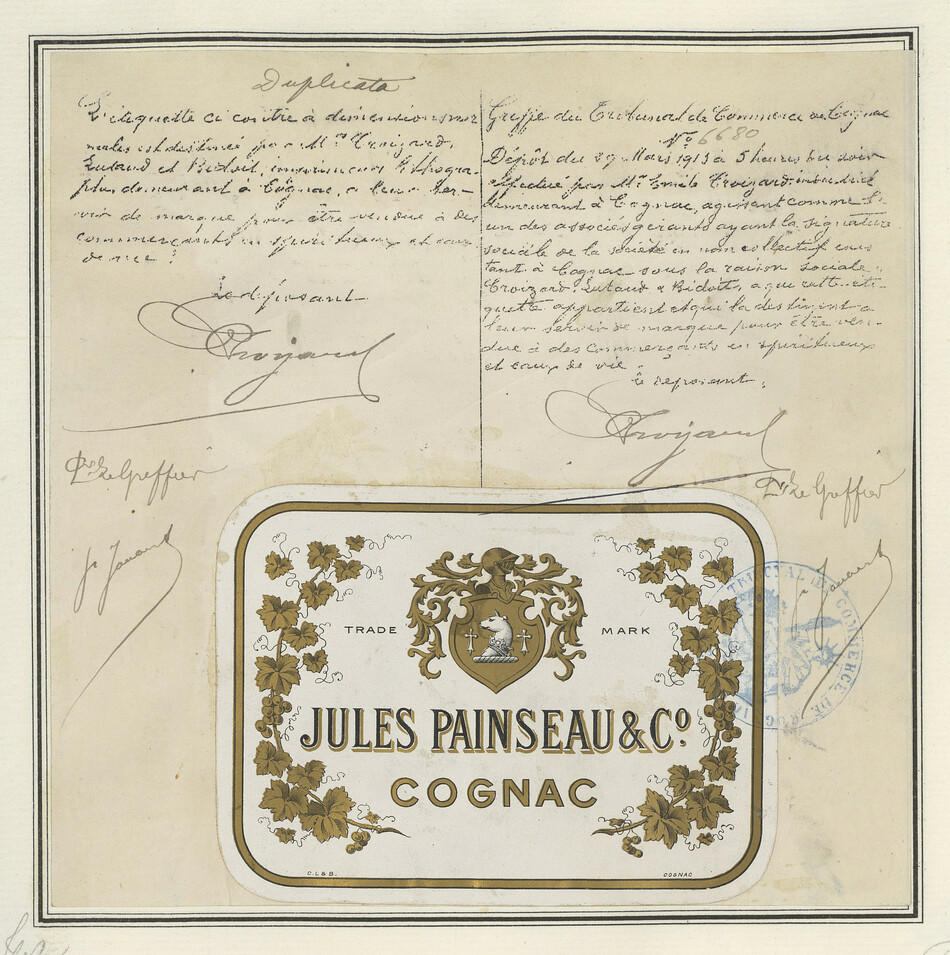 Duplicata
L'étiquette ci contre à dimensions nor
males est destinée par M.rs Croizard,
Lutaud et Bidoit, imprimeurs Lithogra-
phes demeurant à Cognac, a leur ser-
vir de marque pour être vendue à des
commerçants en spiritueux et eaux
de vie.
Le déposant
Croizard
Pr le Greffier
Greffe du Tribunal de Commerce de Cognac
N° 6680
Dépôt du 29 Mars 1913 à 5 heures du soir
effectué par Mr. Emile Croizard industriel
demeurant à Cognac, agissant comme l'
un des associés gérants ayant la signature
sociale de la société en nom collectif exis
tant à Cognac sous la raison sociale:
Croizard, Lutaud & Bidoit, a que cette éti-
quette appartient et qu'il la destinent a
leur servir de marque pour être ven-
due à des commerçants en spiritueux
et eaux de vie.
Le déposant,
Croizard
Pr le Greffier
TRIBUNAL DE COMMERCE DE COGNAC
TRADE MARK
JULES PAINSEAU & Cº
COGNAC
C.L & B.
COGNAC